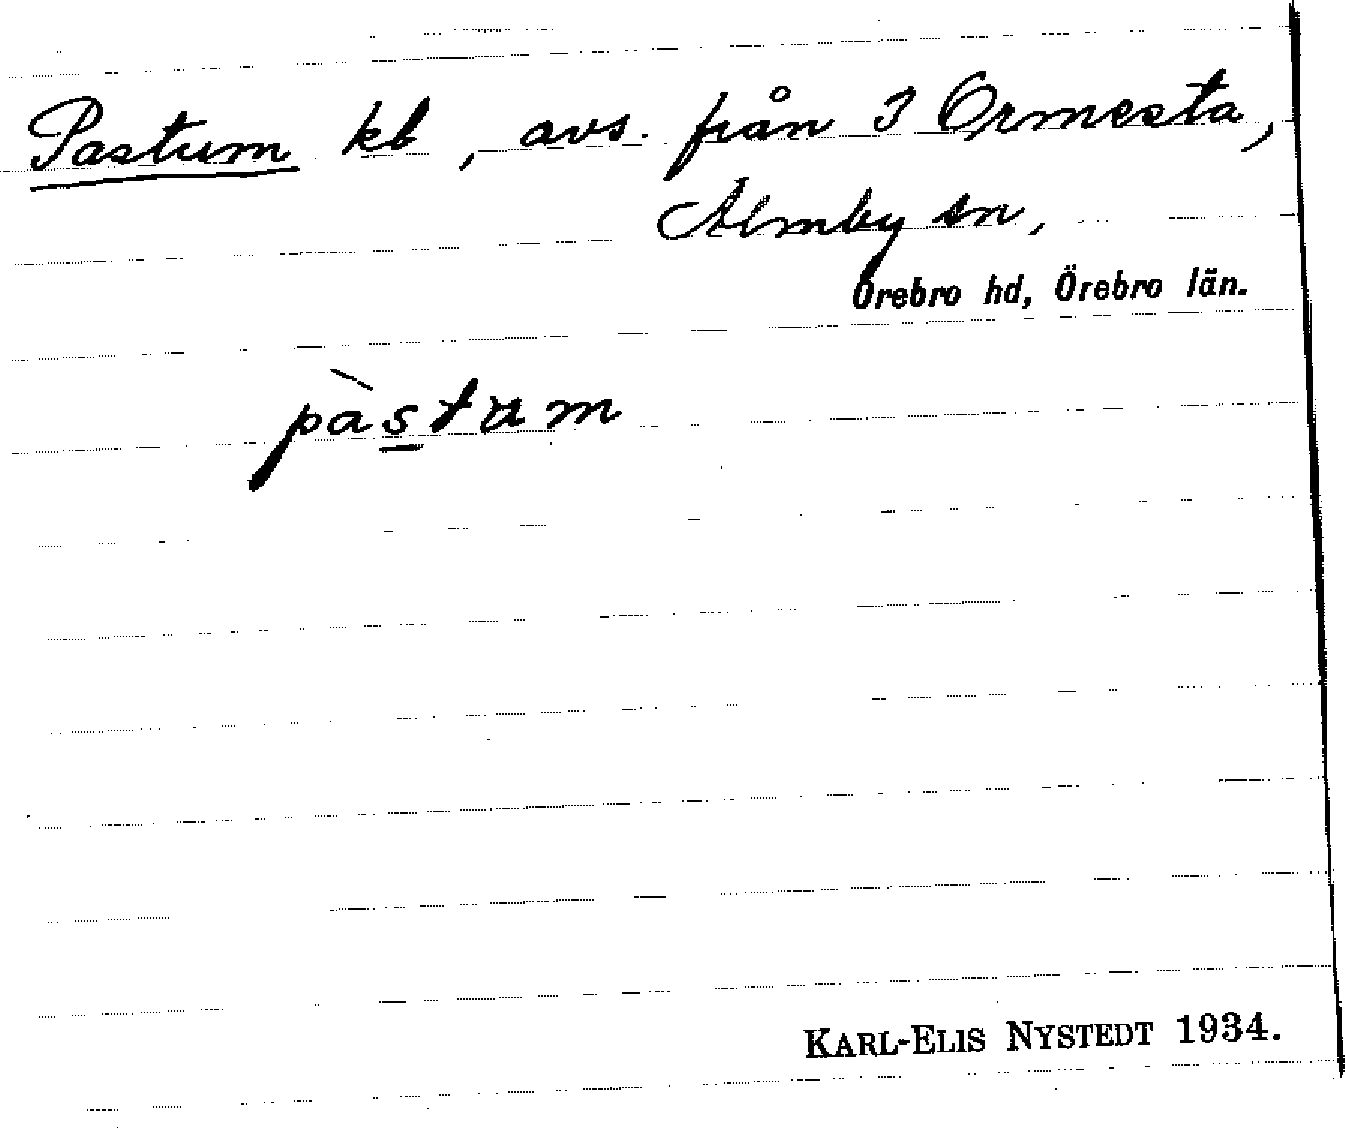 Pastum kl, avs. från 3 Ormesta,
Almby sn,
Örebro hd, Örebro län.
pàstum
KARL-ELIS NYSTEDT 1934.